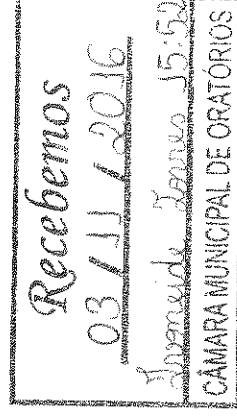 Recebemos
03 / 11 / 2016
15:50
CÂMARA MUNICIPAL DE ORATÓRIOS